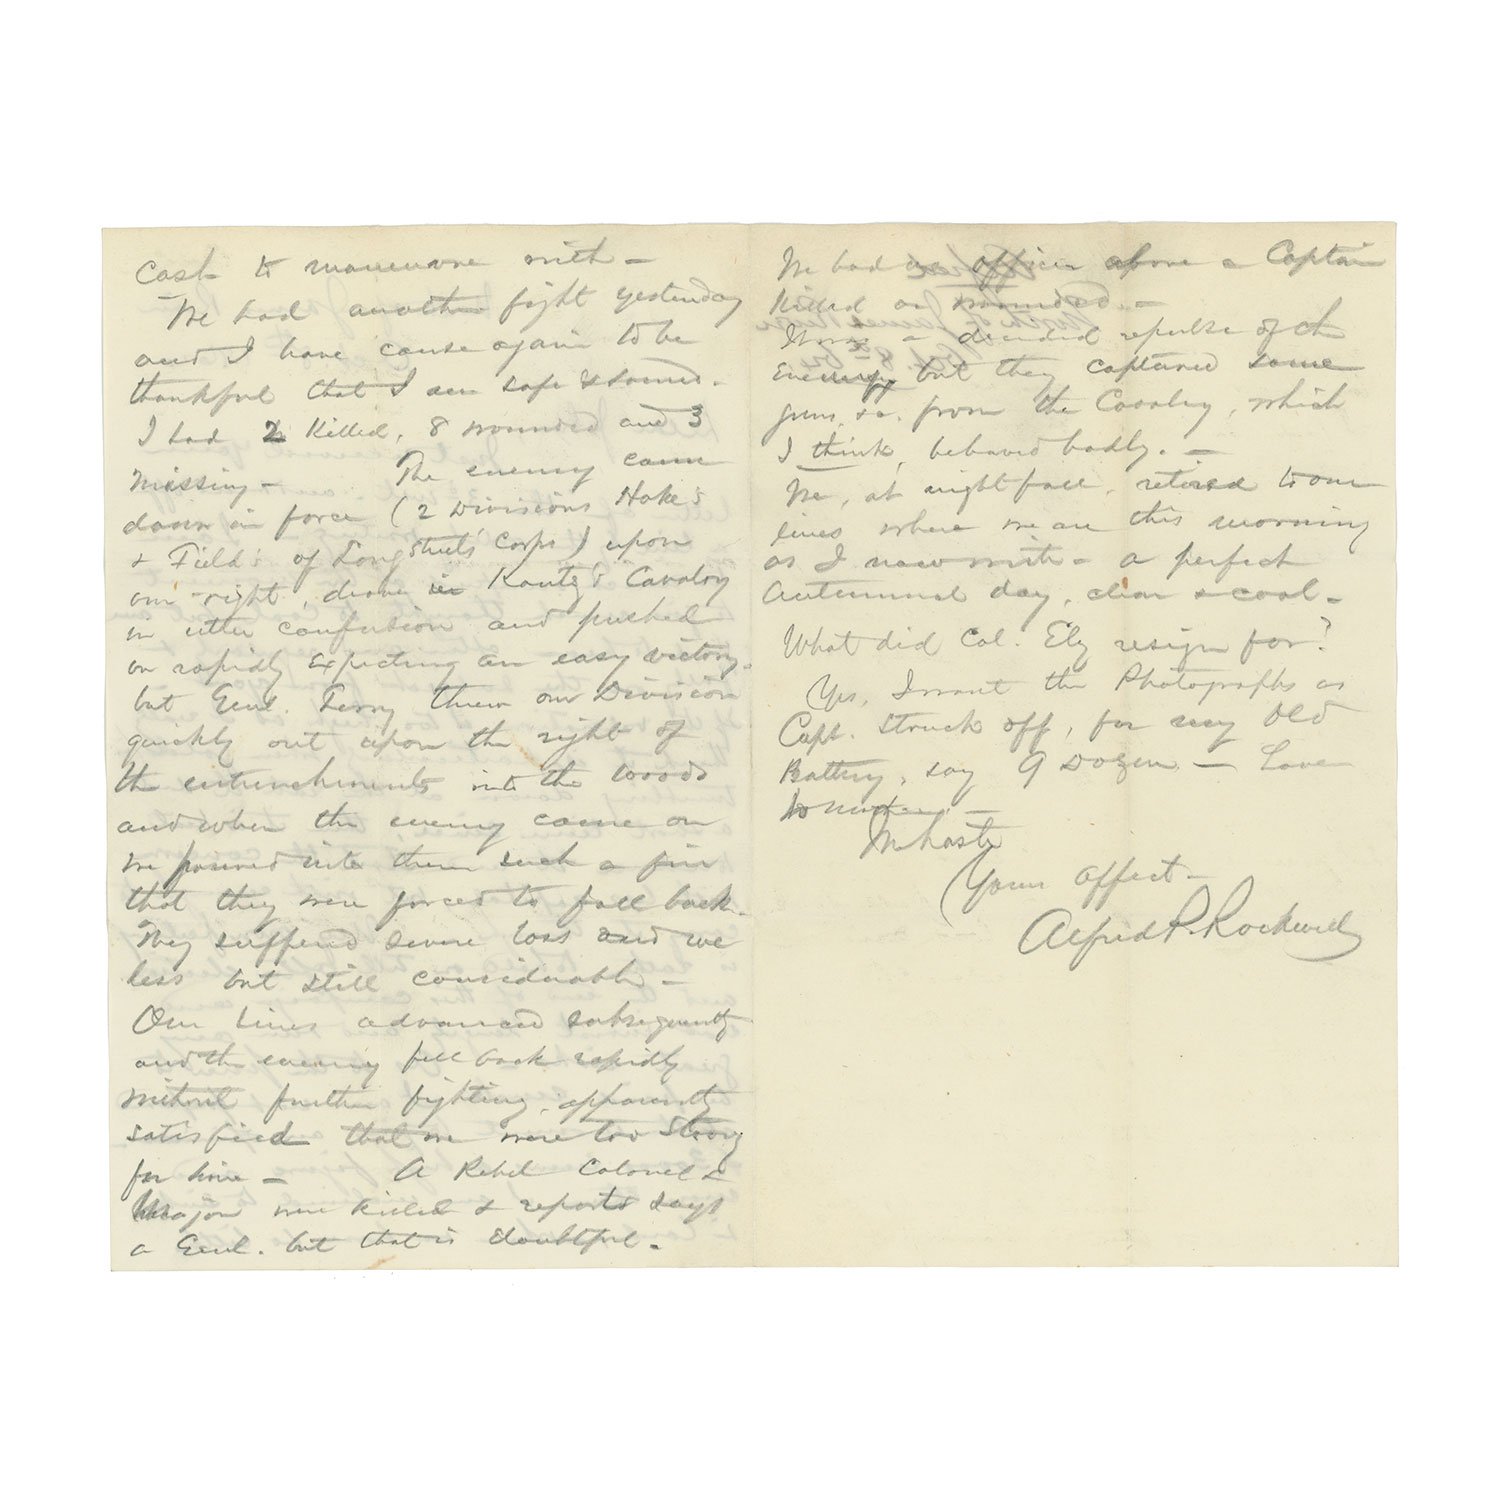 cash to maneuvre with –
We had another fight yesterday
and I have cause again to be
thankful that I am safe & sound.
I had 2 killed, 8 wounded and 3
missing – The enemy came
down in force (2 Divisions Hoke's
& Field's of Longstreet's Corps) upon
our right, drove in Kautz's Cavalry
in utter confusion and pushed
on rapidly expecting an easy victory.
but Genl. Terry threw our Division
quickly out upon the right of
the entrenchments into the woods
and when the enemy came on
we poured into them such a fire
that they were forced to fall back.
They suffered severe loss and we
less but still considerable –
Our lines advanced subsequently
and the enemy fell back rapidly
without further fighting, apparently
satisfied that we were too strong
for him – A Rebel Colonel &
Major were killed & reports says
a Genl. but that is doubtful.
We had no officer above a Captain
killed or wounded. –
It was a decided repulse of the
enemy, but they captured some
guns, &c. from the Cavalry, which
I think, behaved badly. –
We, at nightfall, retired to our
lines where we are this morning
as I now write – a perfect
Autumnal day, clear & cool –
What did Col. Ely resign for?
Yes, I want the Photographs as
Capt. struck off, for my Old
Battery, say 9 Dozen – Love
to mother –
In haste
Yours affect –
Alfred P. Rockwell